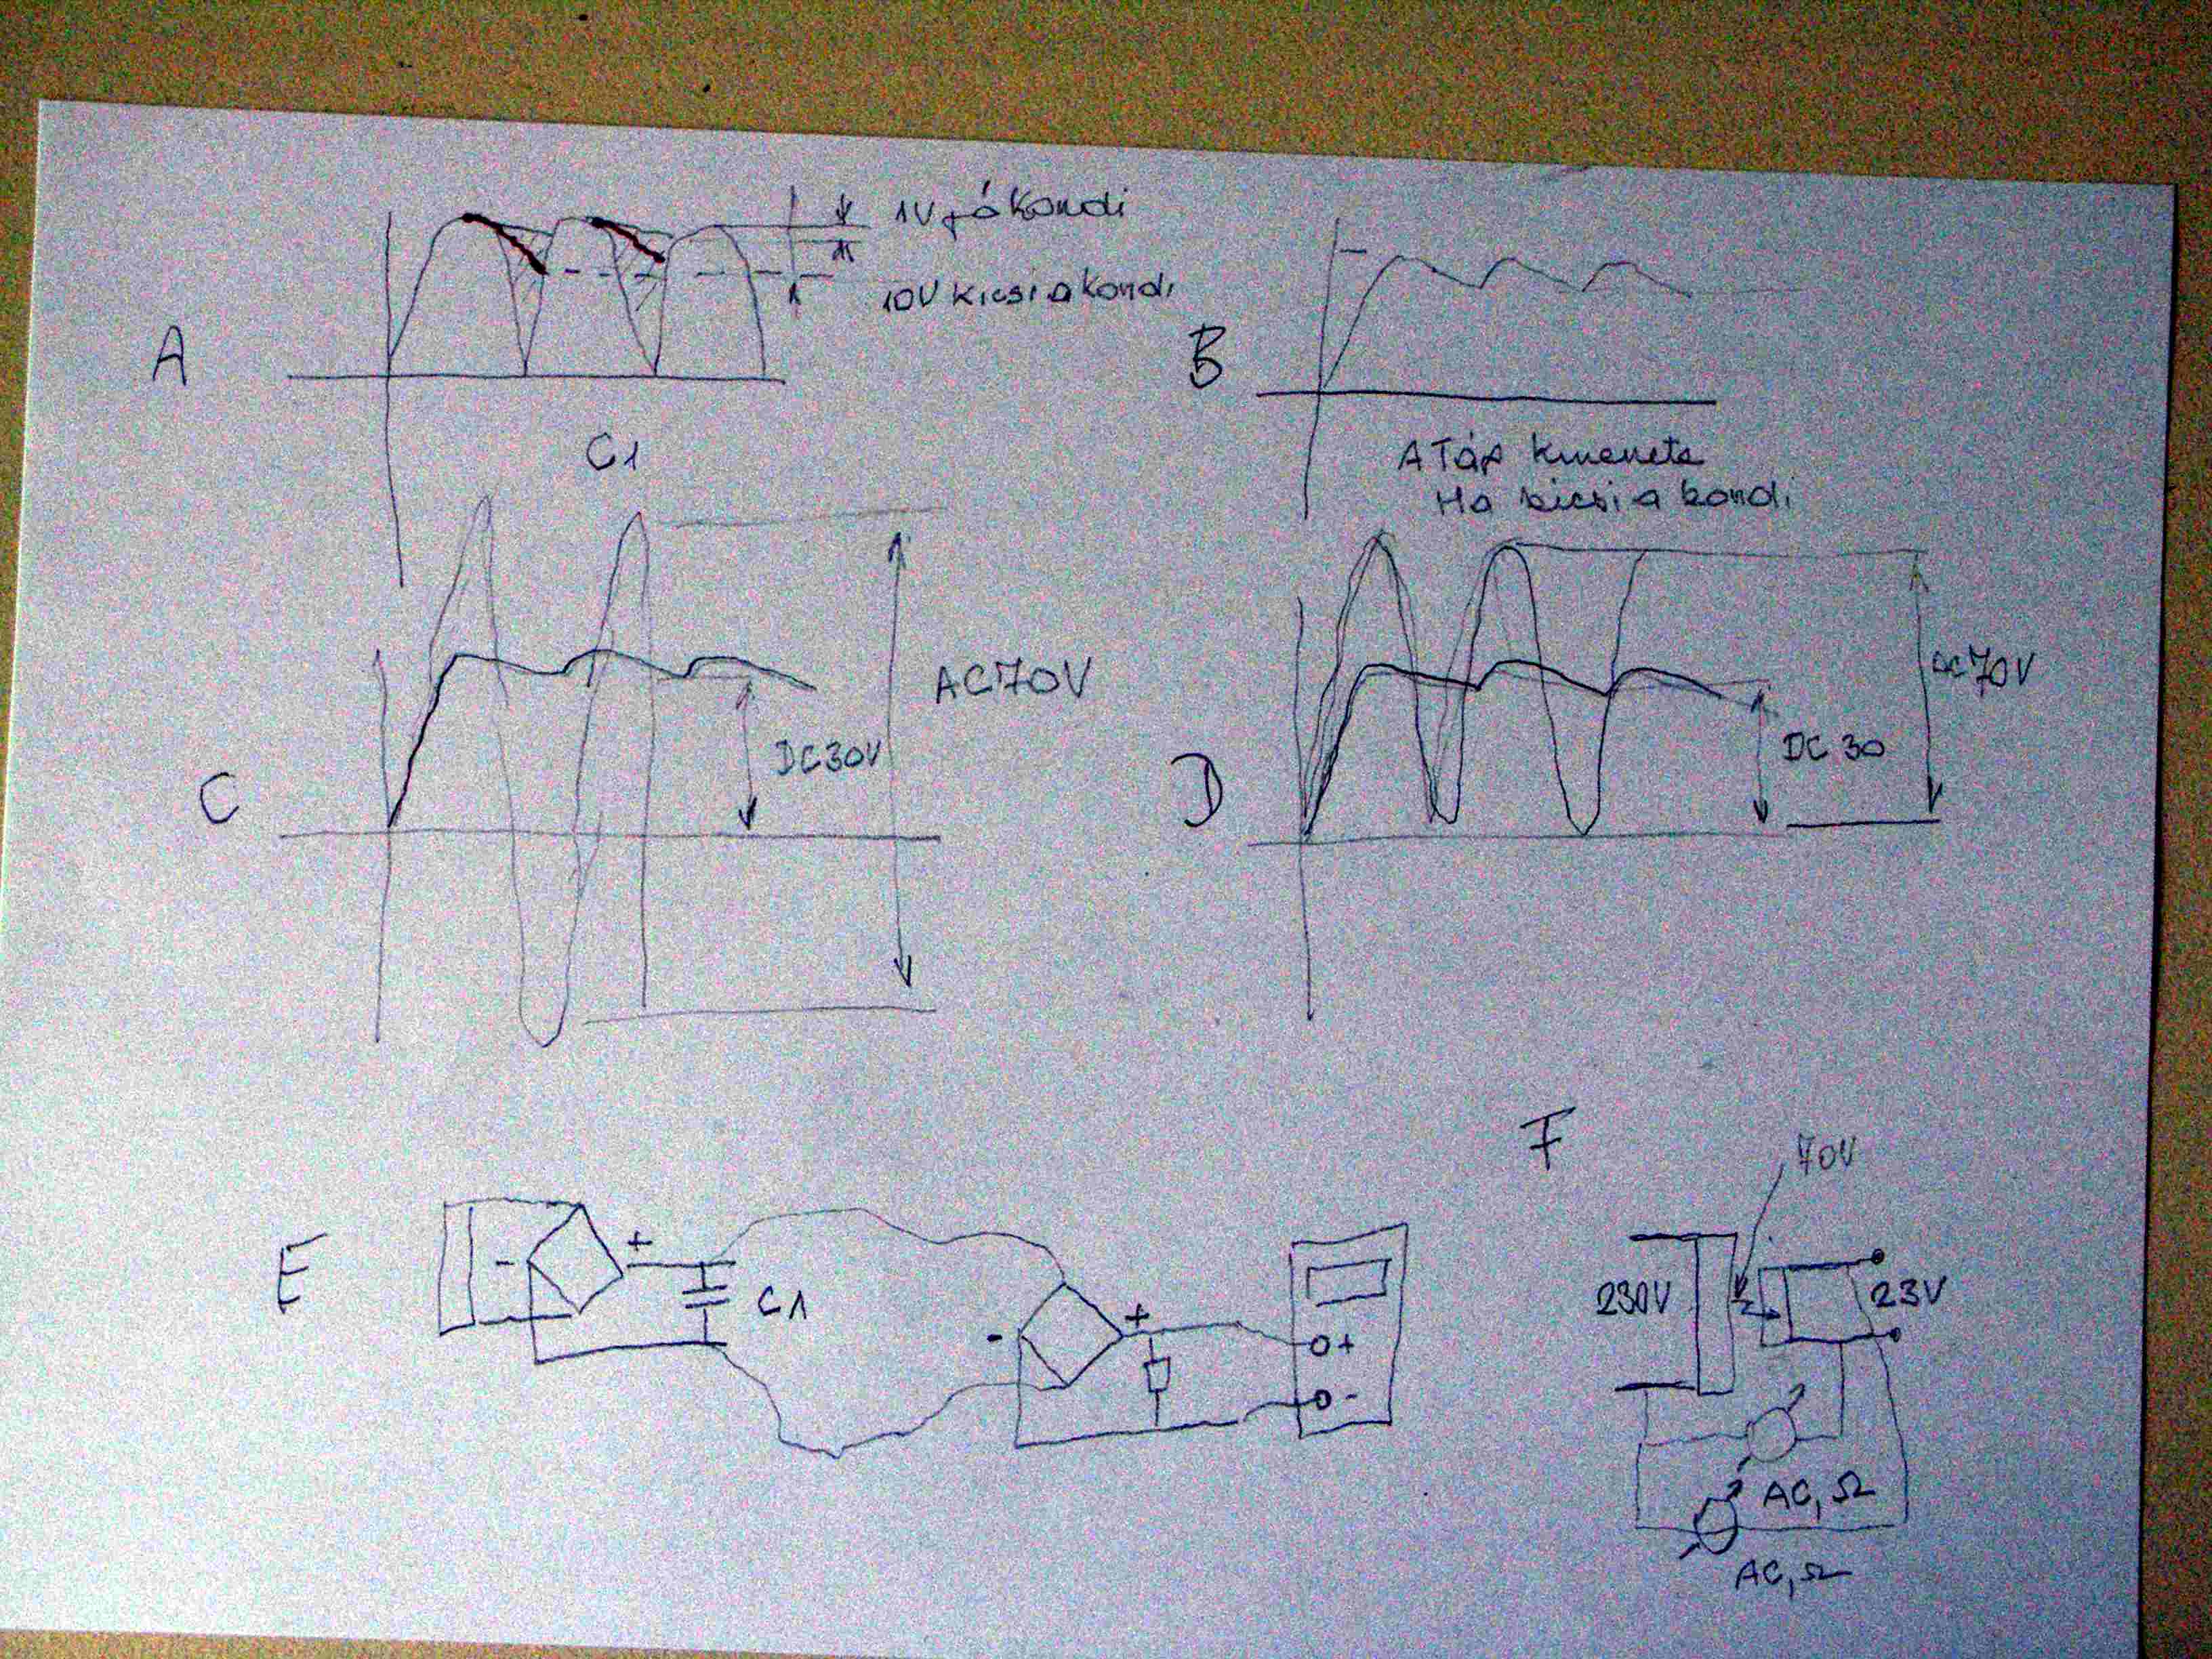 1V jó kondi
10V kicsi a kondi
A
B
C1
A Táp kimenete
Ha kicsi a kondi
AC70V
DC30V
C
D
DC 30
F
70V
E
-
+
C1
+
-
+
-
230V
23V
AC, Ω
AC, Ω